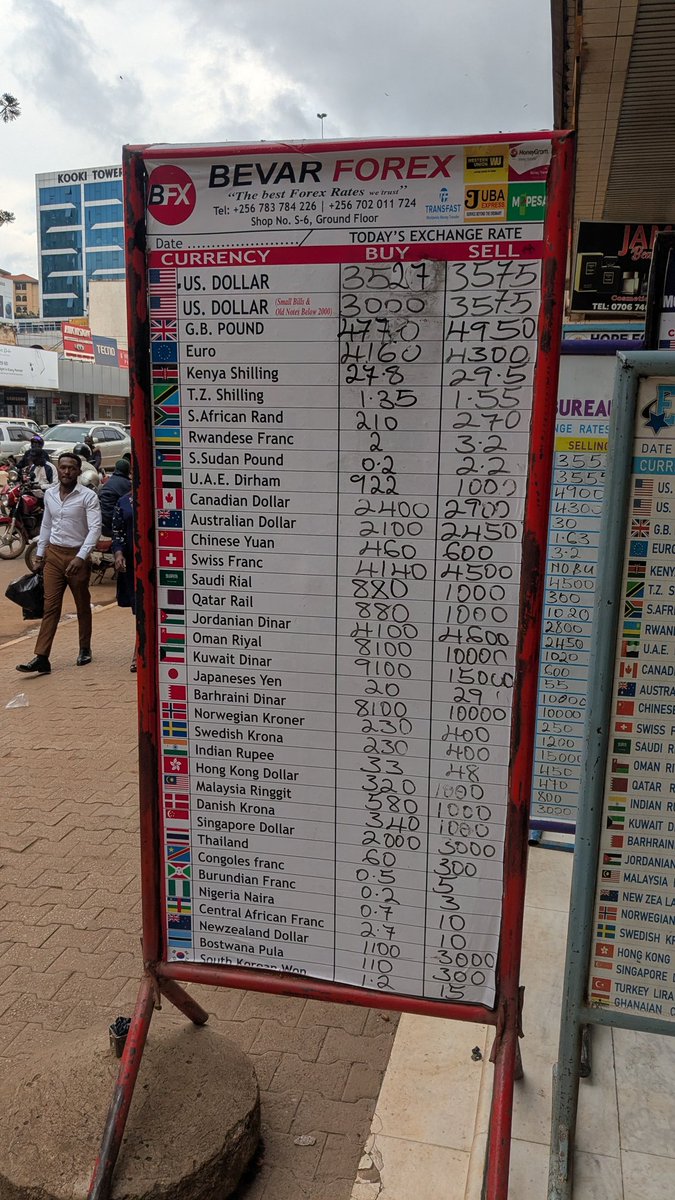 KOOKI TOWER
TECNO
BFX
BEVAR FOREX
"The best Forex Rates we trust"
Tel: +256 783 784 226 | +256 702 011 724
Shop No. S-6, Ground Floor
WESTERN UNION WU
MoneyGram
TRANSFAST
JUBA EXPRESS
M-PESA
Date ............ TODAY'S EXCHANGE RATE
CURRENCY BUY SELL
US. DOLLAR 3527 3575
US. DOLLAR (Small Bills & Old Notes Below 2000) 3000 3575
G.B. POUND 4770 4950
Euro 4160 4300
Kenya Shilling 27.8 29.5
T.Z. Shilling 1.35 1.55
S.African Rand 210 270
Rwandese Franc 2 3.2
S.Sudan Pound 0.2 2.2
U.A.E. Dirham 922 1000
Canadian Dollar 2400 2900
Australian Dollar 2100 2450
Chinese Yuan 460 600
Swiss Franc 4140 4500
Saudi Rial 880 1000
Qatar Rail 880 1000
Jordanian Dinar 4100 4600
Oman Riyal 8100 10000
Kuwait Dinar 9100 15000
Japaneses Yen 20 29
Barhraini Dinar 8100 10000
Norwegian Kroner 230 400
Swedish Krona 230 400
Indian Rupee 33 48
Hong Kong Dollar 320 1000
Malaysia Ringgit 580 1000
Danish Krona 340 1000
Singapore Dollar 2000 3000
Thailand 60 300
Congoles franc 0.5 5
Burundian Franc 0.2 3
Nigeria Naira 0.7 10
Central African Franc 2.7 10
Newzealand Dollar 1100 3000
Bostwana Pula 110 300
South Korean Won 1.2 15
TEL: 0706 746
BUREAU
NGE RATES
SELLING
355
355
4900
4300
30
1.63
3.2
NOBU
4500
300
1020
2800
2450
1020
600
55
10000
10000
250
1200
15000
450
470
800
3000
DATE
CURR
US.
US.
G.B
EURO
KENY
T.Z S
S.AFR
RWAN
U.A.E.
CANAD
AUSTRA
CHINES
SWISS F
SAUDI R
OMAN RI
QATAR R
INDIAN RU
KUWAIT D
BARHRAIN
JORDANIAN
MALAYSIA
NEW ZEALA
NORWEGIAN
SWEDISH KR
HONG KONG
SINGAPORE D
TURKEY LIRA
GHANAIAN C